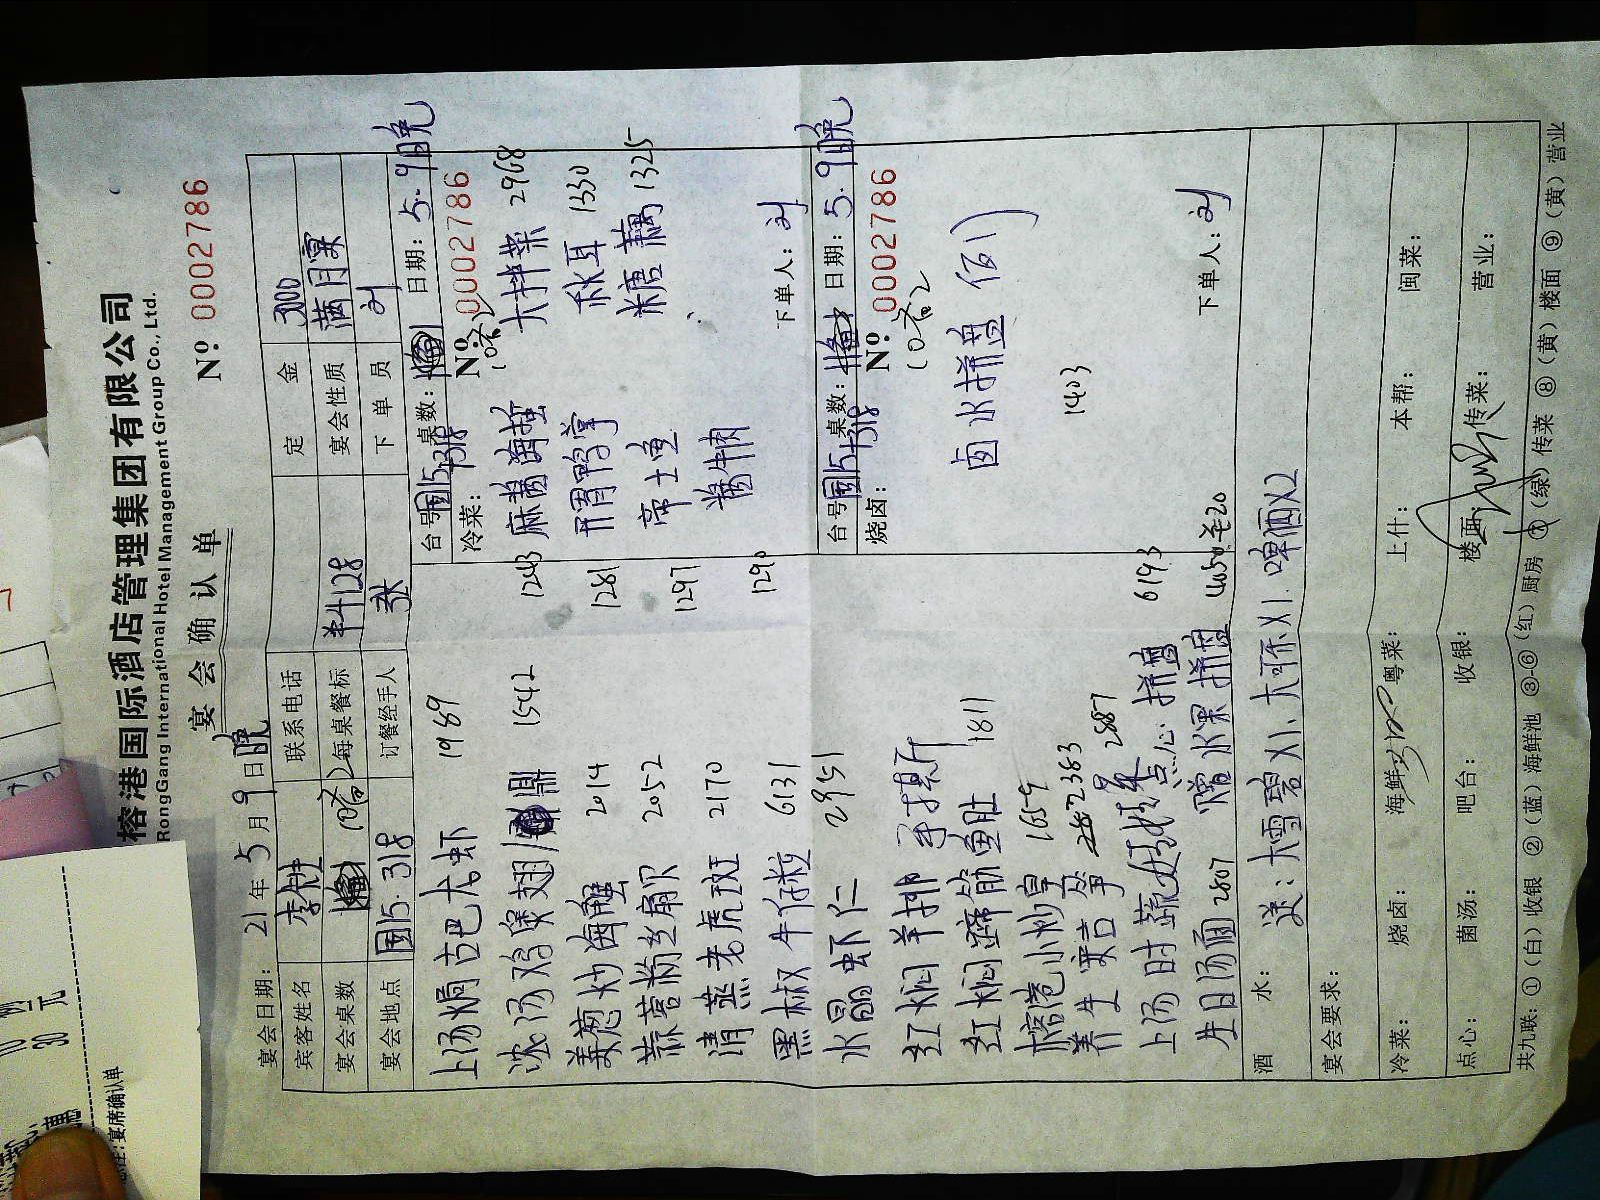 榕港国际酒店管理集团有限公司
RongGang International Hotel Management Group Co., Ltd.
宴会确认单
Nº 0002786
宴会日期: 21年5月9日晚
宾客姓名
联系电话
定金 3000
宴会桌数
10
每桌餐标 4128
宴会性质 满月宴
宴会地点 国15.318
订餐经手人 张
下单员 刘
上汤焗古巴大虾 1989
浓汤鸡煲翅 1542
姜葱炒海蟹 2014
蒜蓉粉丝扇贝 2052
清蒸老虎斑 2170
黑椒牛仔粒 6131
水晶虾仁 2951
红焖羊排 手撕
红焖蹄筋鱼肚 1811
榕港小炒皇 1659
养生 2383
上汤时蔬 2887
点心拼盘 6193
生日汤面 2807
赠水果拼盘
台号: 国15+318
桌数:
日期: 5.9晚
冷菜:
Nº 0002786
麻酱海蜇 1243
大拌菜 2968
鸭掌 1281
秋耳 1330
帝士鱼 1297
糖藕 1325
酱牛肉 1290
下单人: 刘
台号: 国15+318
桌数:
日期: 5.9晚
烧卤:
Nº 0002786
卤水拼盘
1403
下单人: 刘
酒水: 送: 大雪碧X1. 大可乐X1. 啤酒X2
宴会要求:
冷菜:
烧卤:
海鲜:
粤菜:
上什:
本帮:
闽菜:
点心:
菌汤:
吧台:
收银:
楼面:
传菜:
营业:
共九联: ①(白)收银 ②(蓝)海鲜池 ③-⑥(红)厨房 ⑦(绿)传菜 ⑧(黄)楼面 ⑨(黄)营业
30元
宴席确认单